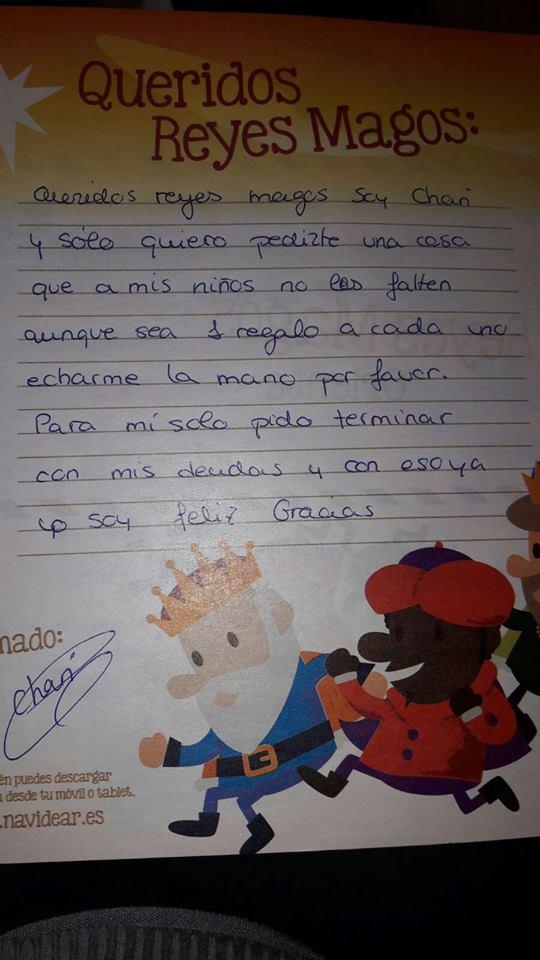 Queridos
Reyes Magos:
Queridos reyes magos soy Chari
y sólo quiero pedirte una cosa
que a mis niños no les falten
aunque sea 1 regalo a cada uno
echarme la mano por favor.
Para mí solo pido terminar
con mis deudas y con eso ya
yo soy feliz Gracias
mado:
Chari
én puedes descargar
desde tu móvil o tablet.
.navidear.es